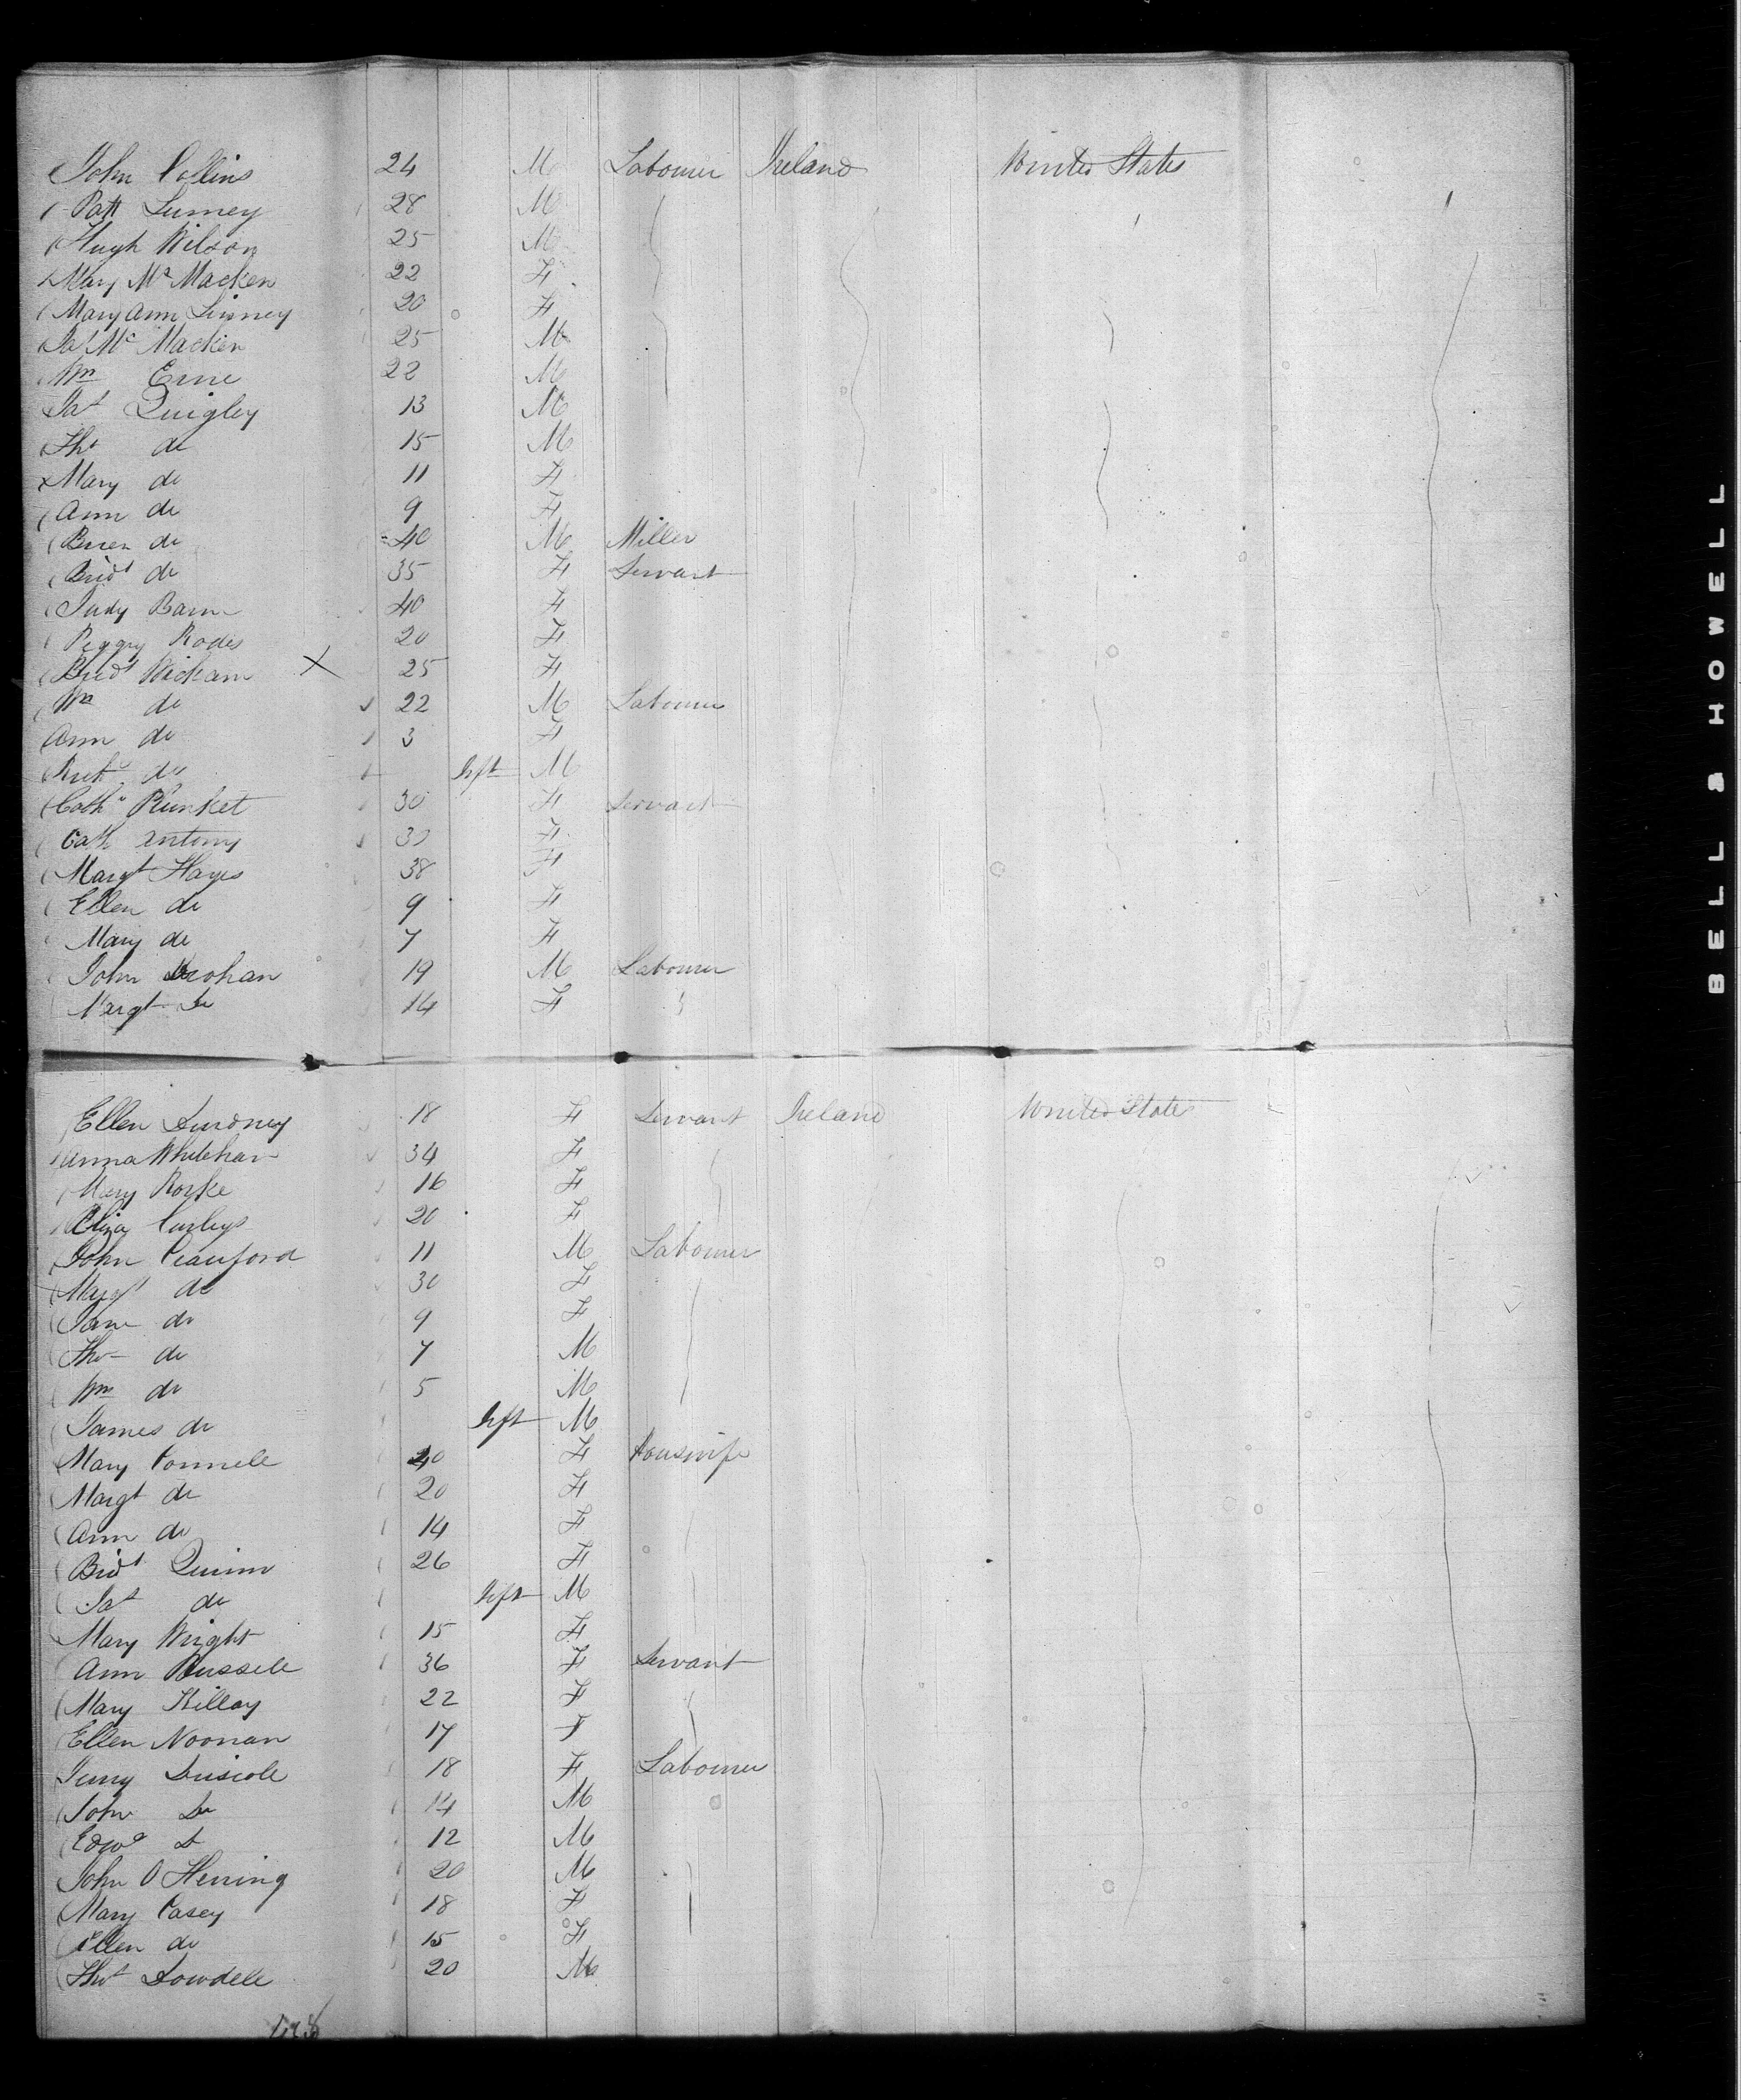 John Collins 24 M Labourer Ireland United States
Patt Lurney 28 M
Hugh Wilson 25 M
Mary Mc Macken 22 F
Mary Ann Linney 20 F
Jas Mc Macken 25 M
Wm Erne 22 M
Pat Quigley 13 M
Thos do 15 M
Mary do 11 F
Ann do 9 F
do 40 M Miller
Bridt do 35 F Servant
Judy Barn 40 F
Peggy Rodes 20 F
Bridt Wickam X 25 F
Wm do 22 M Labourer
Ann do 3 F
Richd do Inft M
Cath Plunket 30 F Servant
Cath Antony 30 F
Margt Hayes 38 F
Ellen do 9 F
Mary do 7 F
John Drohan 19 M Labourer
Margt Do 14 F
Ellen 18 F Servant Ireland United States
Anna Whitehan 34 F
Mary Rorke 16 F
Eliza Curleys 20 F
John Crauford 11 M Labourer
Margt do 30 F
Jane do 9 F
Thos do 7 M
Wm do 5 M
James do Inft M
Mary Connell 40 F Housewife
Margt do 20 F
Ann do 14 F
Bridt Quinn 26 F
Pat do Inft M
Mary Wright 15 F
Ann Russell 36 F Servant
Mary Killoy 22 F
Ellen Noonan 17 F
Jerry Driscole 18 F Labourer
John Do 14 M
Edwd D 12 M
John O Herring 20 M
Mary Casey 18 F
Ellen do 15 F
Thos Dowdell 20 M
BELL & HOWELL